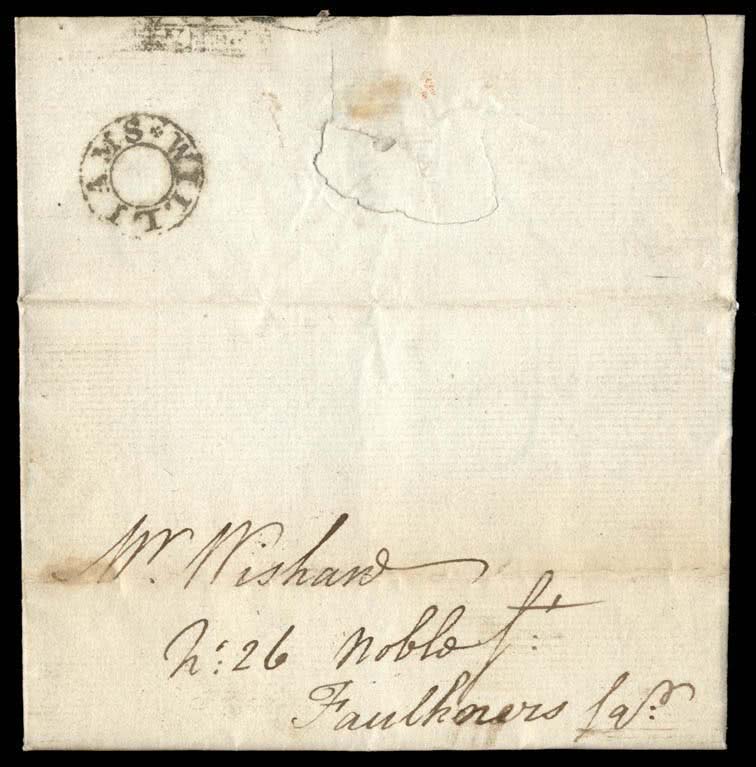 WILLIAMS
Mr. Wishard
No: 26 Noble St:
Faulkners Sqr.